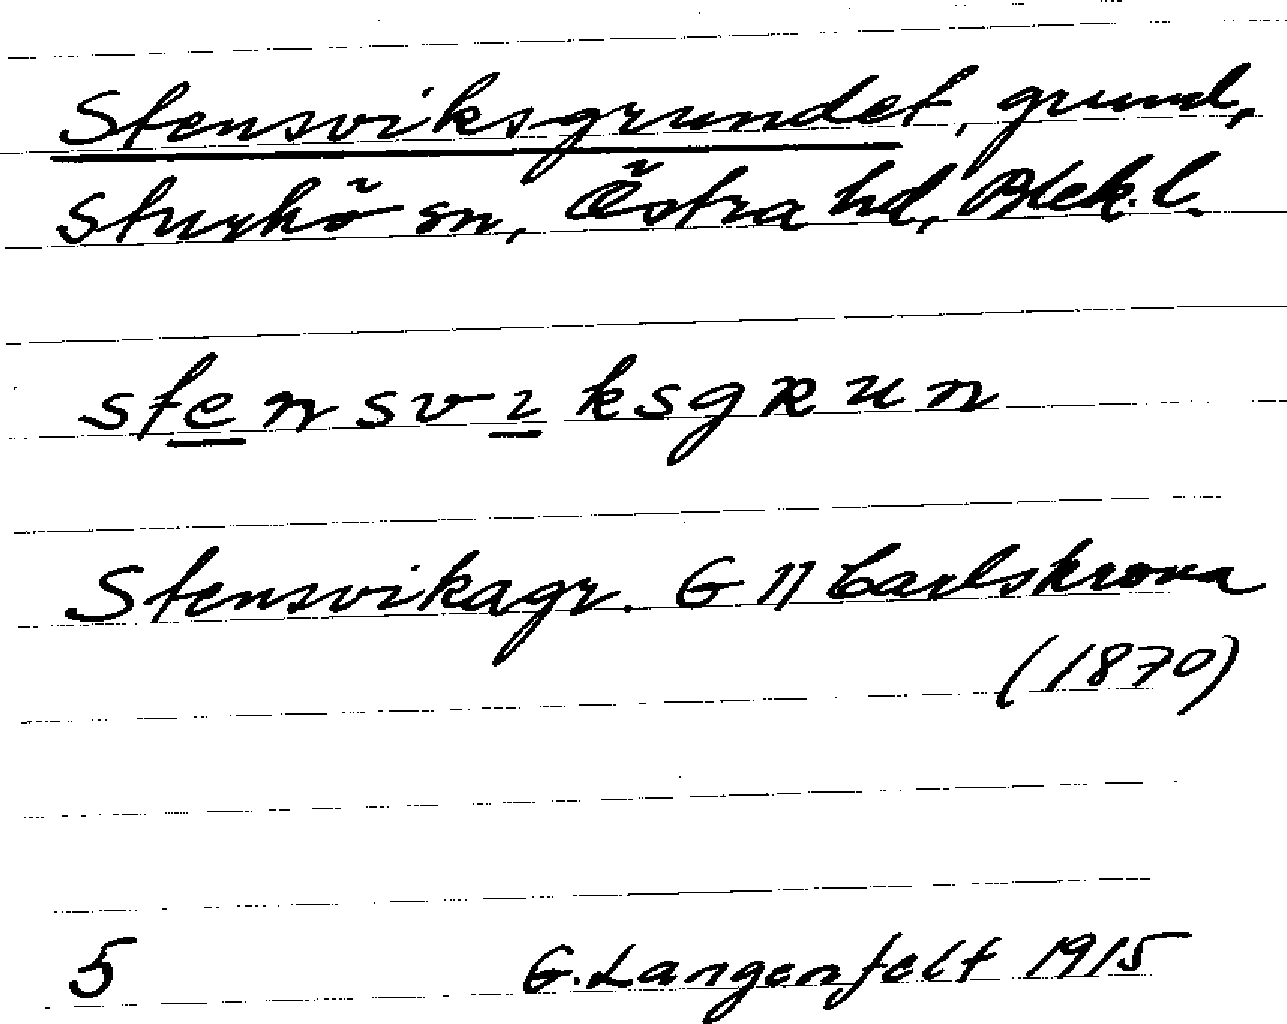 Stensviksgrundet, grund,
Sturkö sn, Östra hd, Blek. l.
stensvıksgRun
Stensvikagr. G 11 Carlskrona
(1870)
5 G. Langenfelt 1915